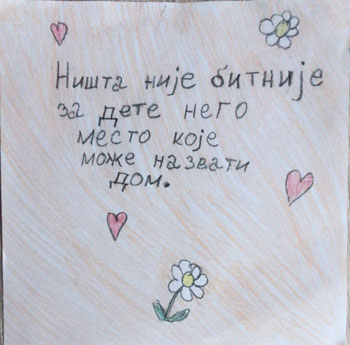 Ништа није битније
за дете него
место које
може назвати
дом.